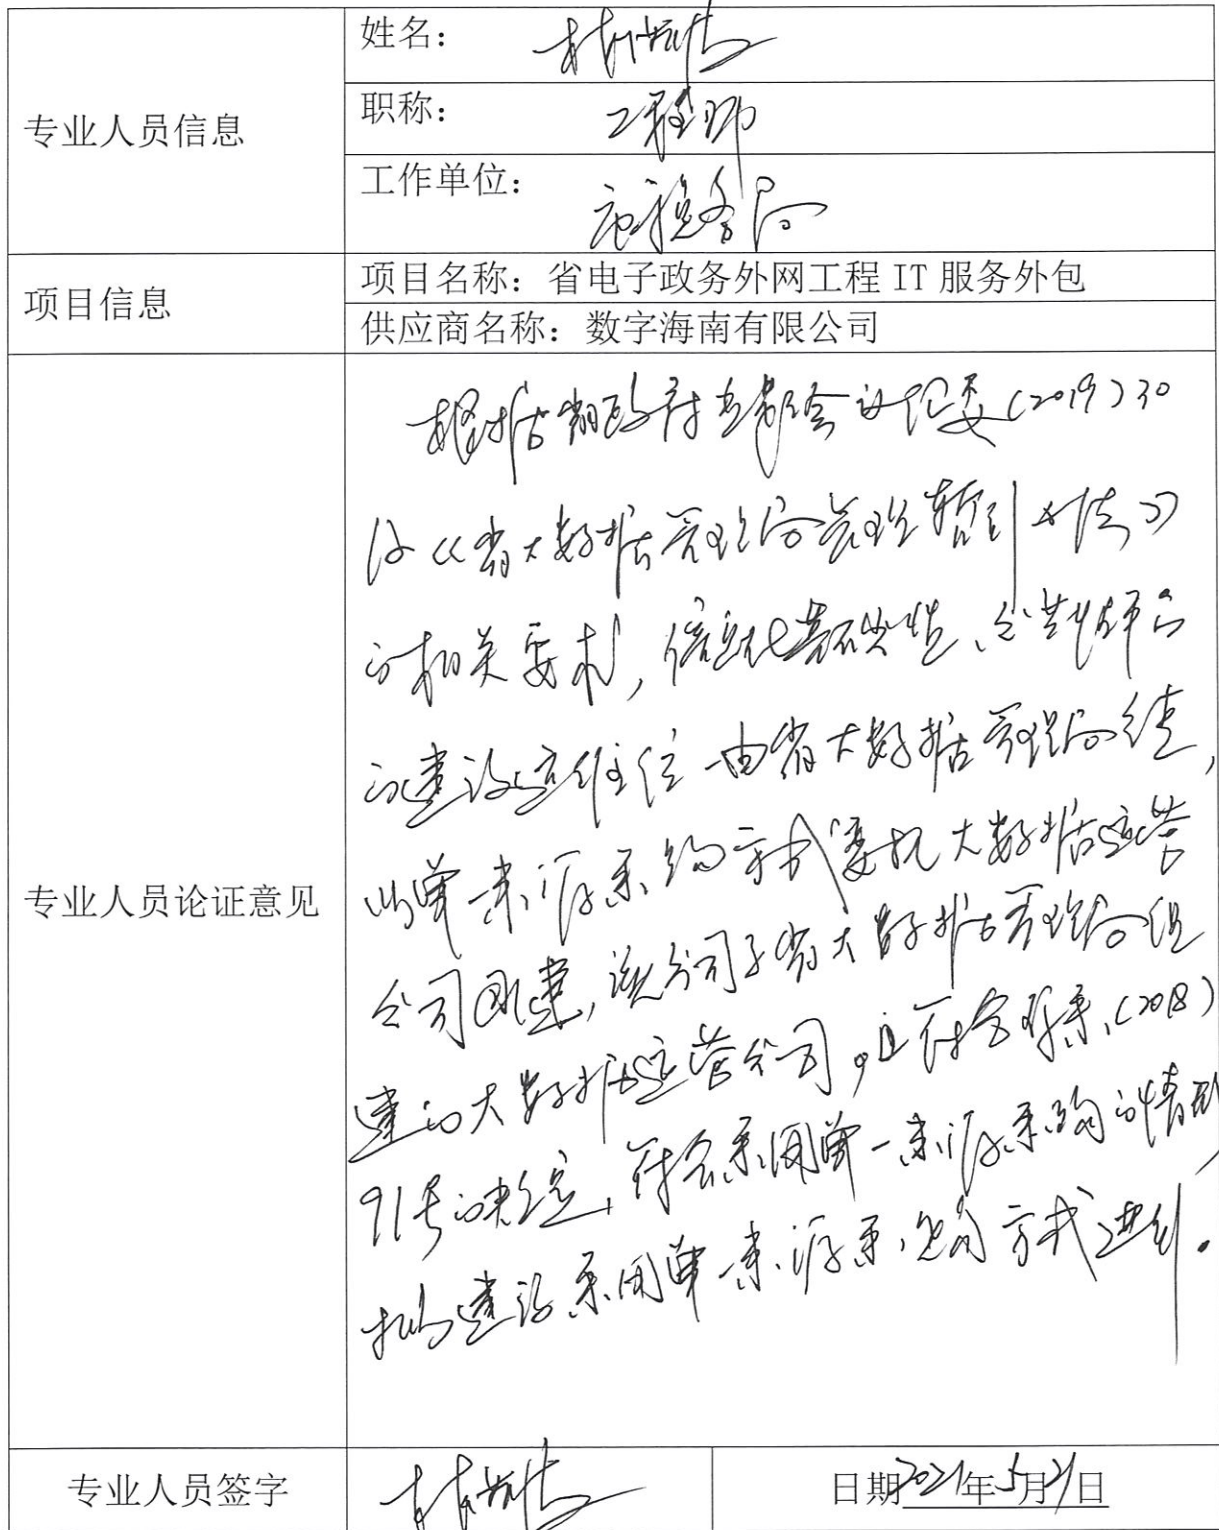 专业人员信息
姓名：林
职称：工程师
工作单位：税务局
项目信息
项目名称：省电子政务外网工程 IT 服务外包
供应商名称：数字海南有限公司
专业人员论证意见
根据省政府专题会议纪要（2019）30
《省大数据管理局管理暂行办法》
的相关要求，信息化基础性、公共性平台
的建设运维 由省大数据管理局
以单一来源采购方式委托大数据运营
公司 建，该公司 省大数据管理局组
建的大数据运营公司，且符合 （2018）
91号的决定，符合采用单一来源采购的情形，
建议采用单一来源采购方式进行。
专业人员签字 林
日期2021年5月21日